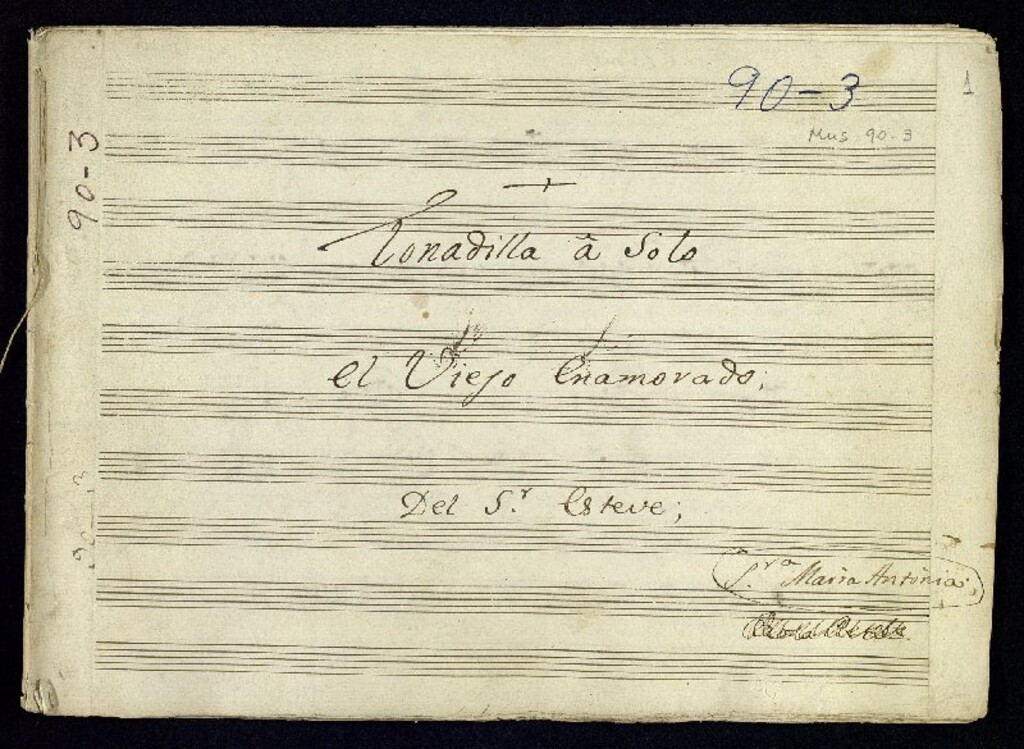 90-3
1
Mus 90-3
90-3
Tonadilla â Solo
el Viejo Enamorado;
Del S.r Esteve;
90-3
S.ra Maria Antonia;